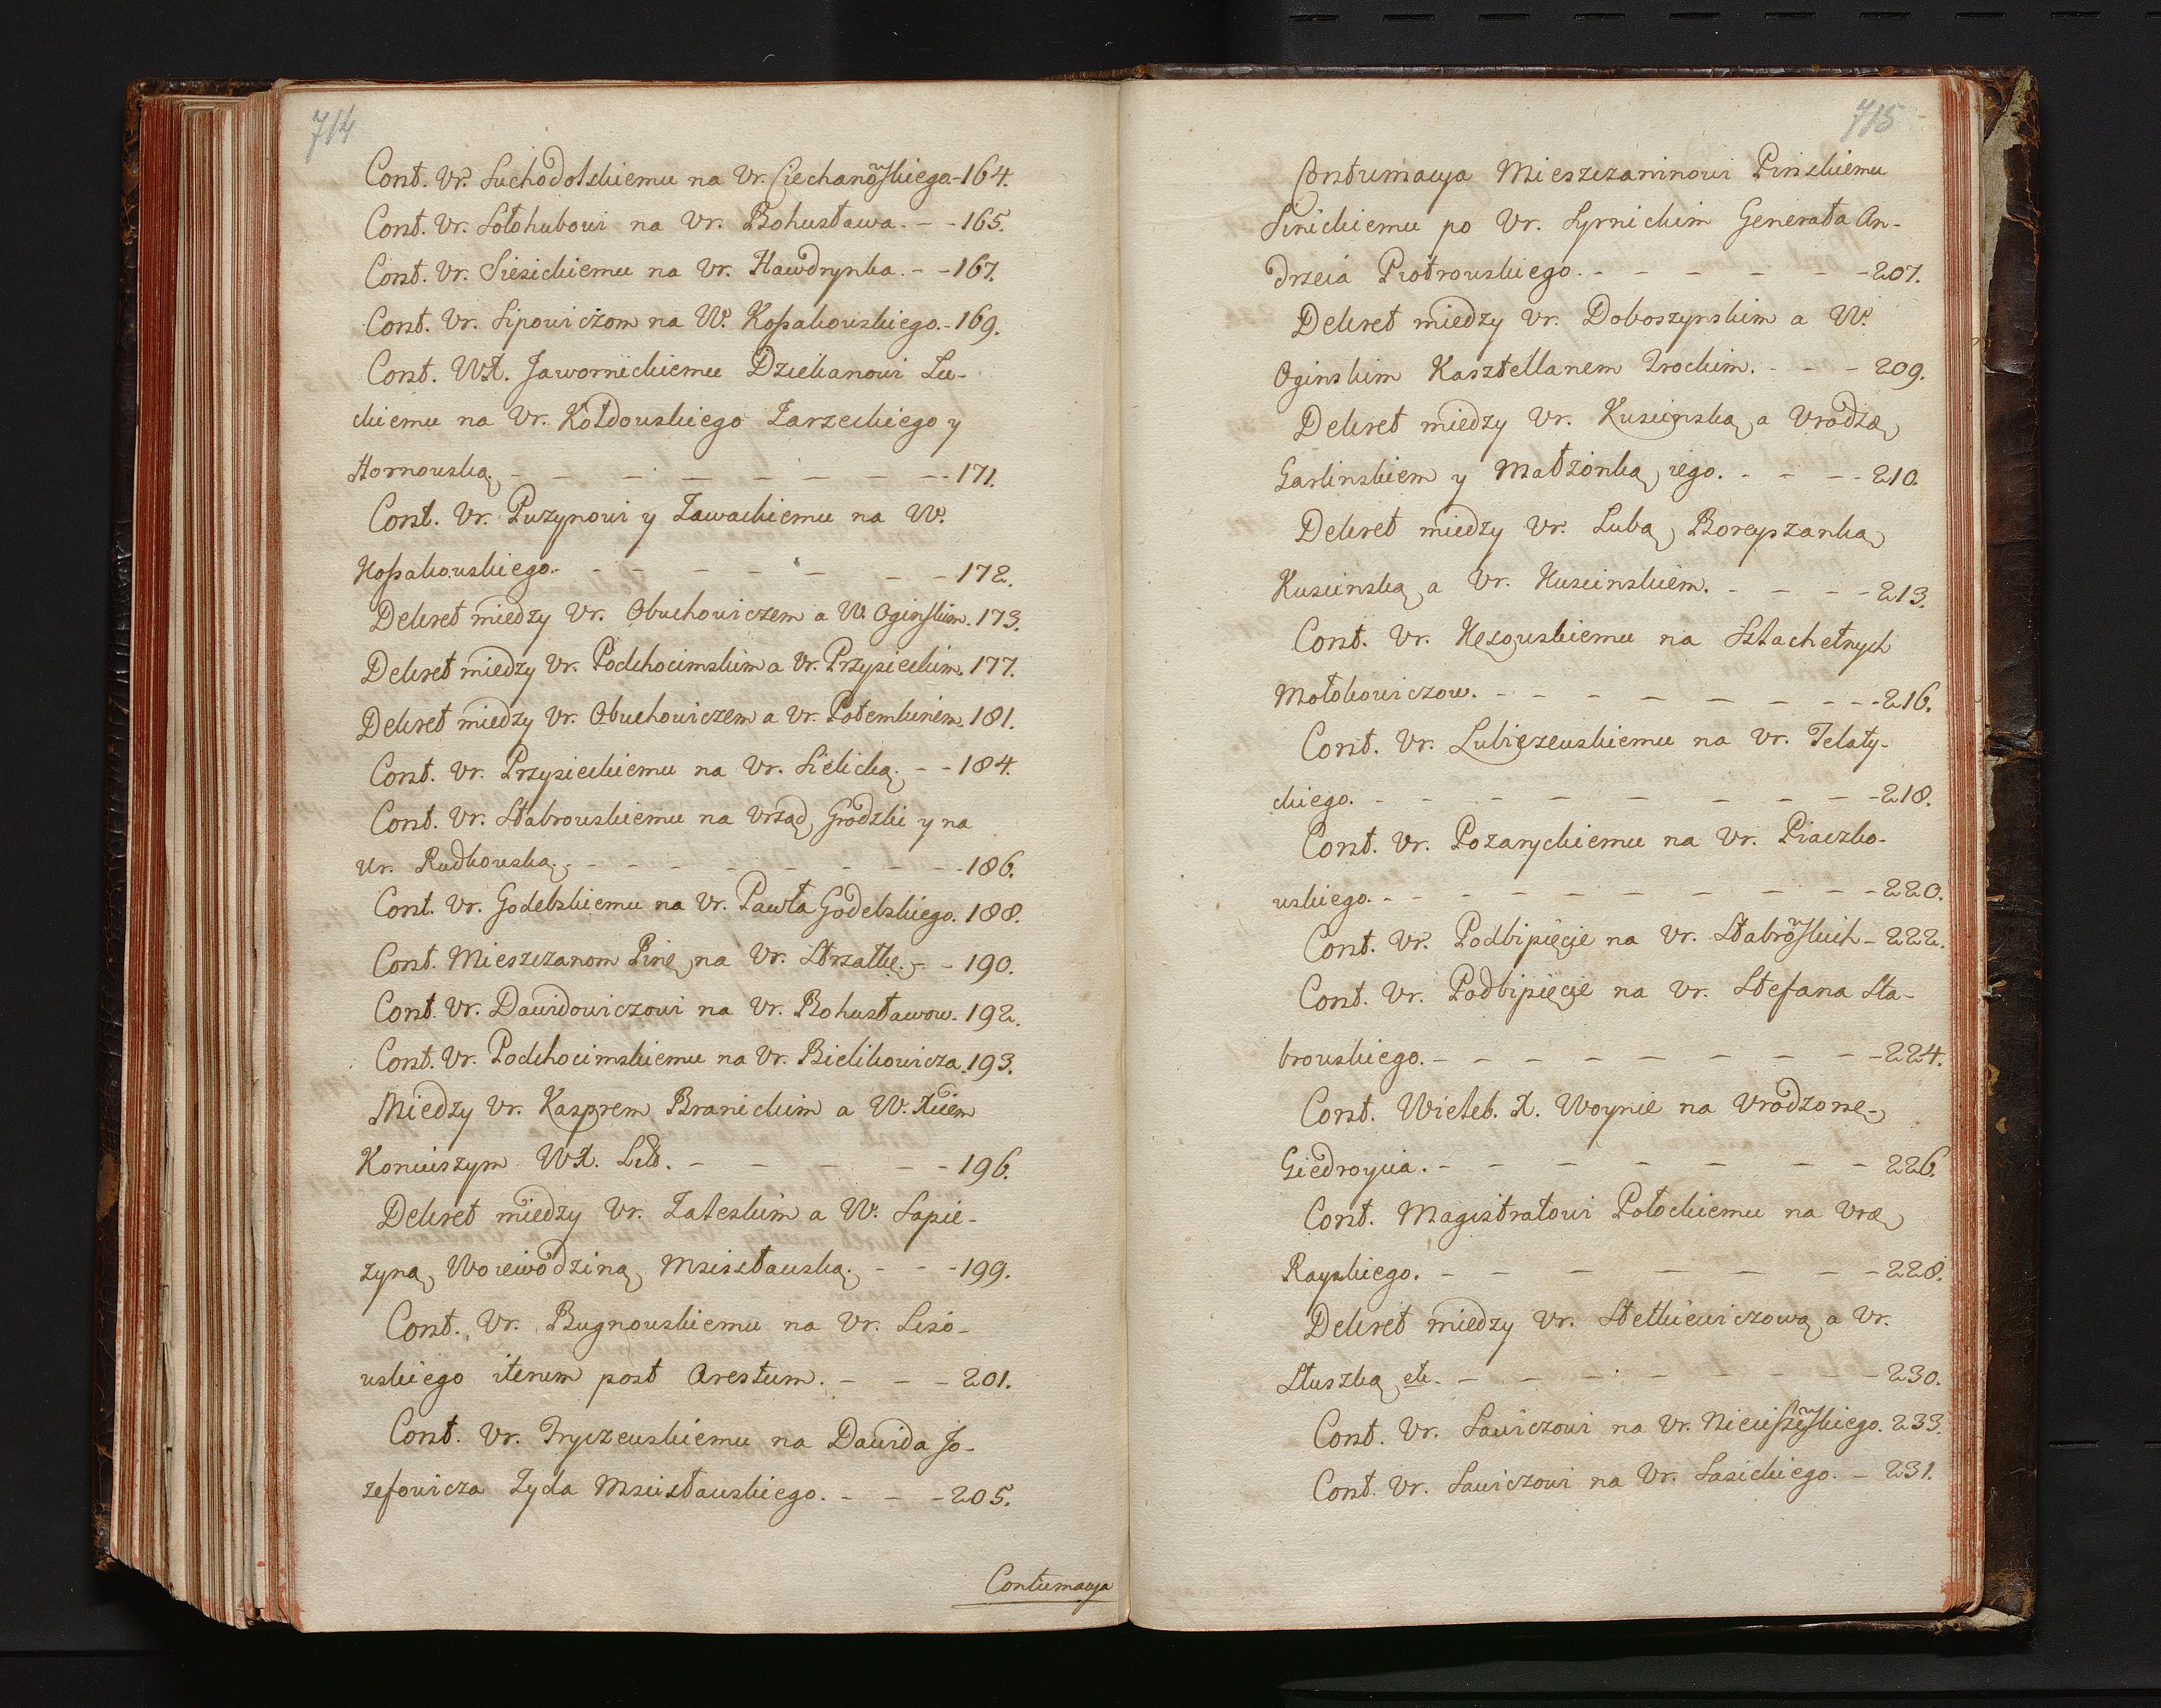 714
Cont. Vr. Suchodolskiemu na Vr. Ciechanoskiego.-164.
Cont. Vr. Sołohubowi na Vr. Bohusława. - - 165.
Cont. Vr. Siesickiemu na Vr. Hawdrynka. - - 167.
Cont. Vr. Lipowiczom na W. Koßakowskiego. - 169.
Cont. WX. Jawornickiemu Dziekanowi Lu-
ckiemu na Vr. Kołdowskiego Zarzeckiego y
Hornowską. - - - - - - - - 171.
Cont. Vr. Puzynowi y Zawackiemu na W.
Koßakowskiego. - - - - - - - 172.
Dekret miedzy Vr. Obuchowiczem a W. Oginskim. 173.
Dekret miedzy Vr. Podchocimskim a Vr. Przysieckim. 177.
Dekret miedzy Vr. Obuchowiczem a Vr. Potemkinem. 181.
Cont. Vr. Przysieckiemu na Vr. Sielicką. - - 184.
Cont. Vr. Stabrowskiemu na Vrząd Grodzki y na
Ur. Rudkowską. - - - - - - - - 186.
Cont. Vr. Godebskiemu na Vr. Pawła Godebskiego. 188.
Cont. Mieszczanom Pinę na Vr. Strzałkę. - - 190.
Cont. Vr. Dawidowiczowi na Vr. Bohusławow. 192.
Cont. Vr. Podchocimskiemu na Vr. Bielikowicza. 193.
Miedzy Vr. Kasprem Branickim a W. Xciem
Koniuszym WX. Litt. - - - - - 196.
Dekret miedzy Vr. Zaleskim a W. Sapie-
zyną Woiewodziną Mscisławską. - - - 199.
Cont. Vr. Bugnowskiemu na Vr. Liso-
wskiego iterum post Arestum. - - - 201.
Cont. Vr. Tryczewskiemu na Dawida Jo-
zefowicza Zyda Mscisławskiego. - - - 205.
Contumacya
715
Contumacya Mieszczaninowi Pinskiemu
Sinickiemu po Vr. Syrnickim Generała An-
drzeia Piotrowskiego. - - - - - - 207.
Dekret miedzy Vr. Doboszynskim a W.
Oginskim Kasztellanem Trockim. - - - 209.
Dekret miedzy Vr. Kuscinską a Vrodzę
Garlinskiem y Małzonką iego. - - - - 210.
Dekret miedzy Vr. Lubą Boreyszanką
Kuscinską a Vr. Kuscinskiem. - - - - 213.
Cont. Vr. Kezowskiemu na Szlachetnych
Mołokowiczow. - - - - - - - - 216.
Cont. Vr. Lubięzewskiemu na Vr. Telaty-
ckiego. - - - - - - - - - 218.
Cont. Vr. Pozaryckiemu na Vr. Piaczko-
wskiego. - - - - - - - - - 220.
Cont. Vr. Podbipięcie na Vr. Stabroskich - 222.
Cont. Vr. Podbipięcie na Vr. Stefana Sta-
browskiego. - - - - - - - - - 224.
Cont. Wieleb. X. Woynie na Vrodzone
Giedroycia. - - - - - - - - 226.
Cont. Magistratowi Połockiemu na Vrę
Rayskiego. - - - - - - - 228.
Dekret miedzy Vr. Stetkiewiczową a Vr.
Słuszką etc. - - - - - - - - 230.
Cont. Vr. Sawiczowi na Vr. 233.
Cont. Vr. Sawiczowi na Vr. Sasickiego. - 231.